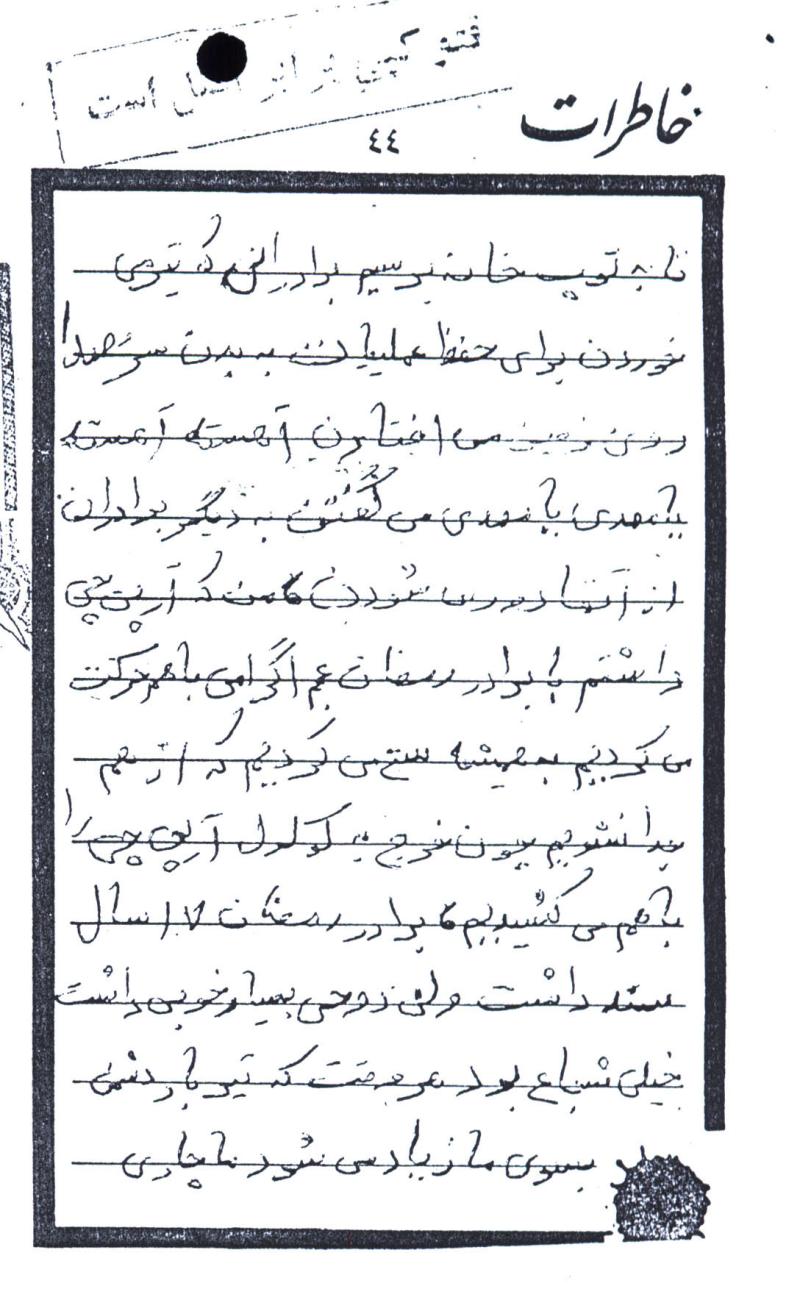 فتو کپی برابر اصل است
خاطرات
٤٤
تا به توپ خانه برسیم برادرانی که تیر می
خوردن برای حفظ عملیات به بدن سر صدا
روی زمین می افتادن آهسته آهسته
یا مهدی یا مهدی می گفتن به دیگر برادران
از آنها دور می شودن من که آرپی چی
داشتم با برادر رمضان عم اگرامی باهم حرکت
می کردیم همیشه سعی می کردیم که از هم
جدا نشویم چون خرج گوله آرپی چی را
باهم می کشیدیم برادر رمضان ۱۷ سال
سند داشت ولی روحی بسیار خوبی داشت
خیلی شجاع بود هر وقت که تیر بار دشمن
بسوی ما زیاد می شود ما چاری